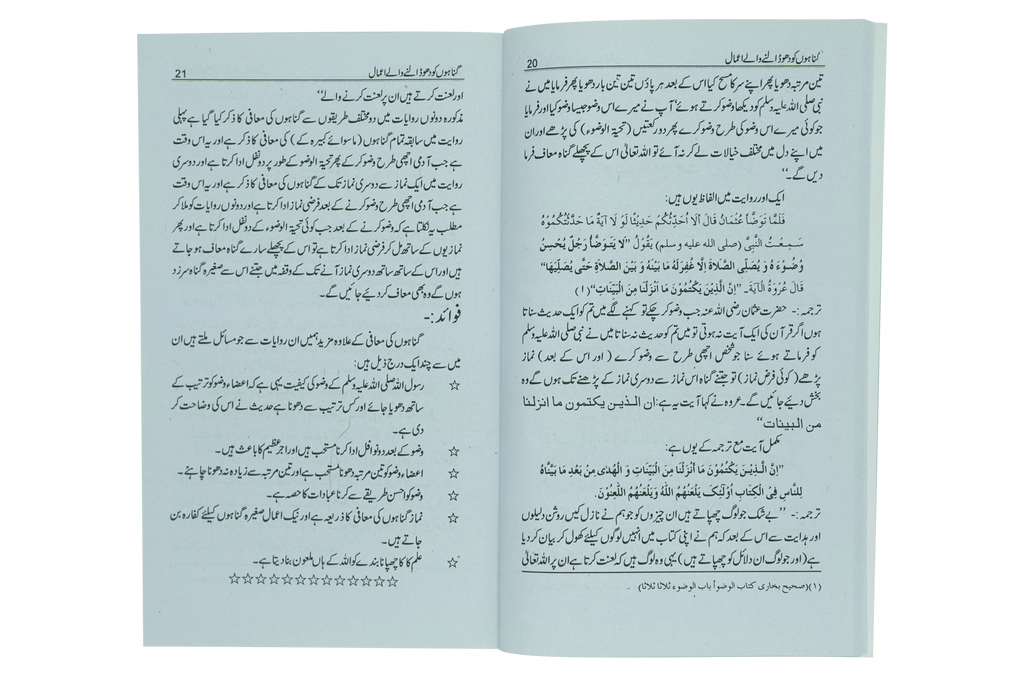 گناہوں کو دھو ڈالنے والے اعمال
20
تین مرتبہ دھویا پھر اپنے سر کا مسح کیا اس کے بعد ہر پاؤں تین تین بار دھویا پھر فرمایا میں نے
نبی صلی اللہ علیہ وسلم کو دیکھا وضو کرتے ہوئے ’’ آپ نے میرے اس وضو جیسا وضو کیا اور فرمایا
جو کوئی میرے اس وضو کی طرح وضو کرے پھر دو رکعتیں (تحیۃ الوضوء) کی پڑھے اور ان
میں اپنے دل میں مختلف خیالات لے کر نہ آئے تو اللہ تعالیٰ اس کے پچھلے گناہ معاف فرما
دیں گے۔‘‘
ایک اور روایت میں الفاظ یوں ہیں:
فَلَمَّا تَوَضَّأَ عُثْمَانُ قَالَ اَلَا اُحَدِّثُكُمْ حَدِيْثًا لَوْ لَا آيَةٌ مَا حَدَّثْتُكُمُوْهُ
سَمِعْتُ النَّبِيَّ (صلی الله عليه وسلم) يَقُوْلُ "لَا يَتَوَضَّأُ رَجُلٌ يُحْسِنُ
وُضُوْءَهُ وَ يُصَلِّي الصَّلَاةَ اِلَّا غُفِرَ لَهُ مَا بَيْنَهُ وَ بَيْنَ الصَّلَاةِ حَتَّى يُصَلِّيَهَا"
قَالَ عُرْوَةُ الْآيَةَ۔ "اِنَّ الَّذِيْنَ يَكْتُمُوْنَ مَا اَنْزَلْنَا مِنَ الْبَيِّنَاتِ" (۱)
ترجمہ:۔ حضرت عثمان رضی اللہ عنہ جب وضو کر چکے تو کہنے لگے میں تم کو ایک حدیث سناتا
ہوں اگر قرآن کی ایک آیت نہ ہوتی تو میں تم کو حدیث نہ سناتا میں نے نبی صلی اللہ علیہ وسلم
کو فرماتے ہوئے سنا جو شخص اچھی طرح سے وضو کرے (اور اس کے بعد) نماز
پڑھے (کوئی فرض نماز) تو جتنے گناہ اس نماز سے دوسری نماز کے پڑھنے تک ہوں گے وہ
بخش دیئے جائیں گے۔ عروہ نے کہا آیت یہ ہے: ان الذین یکتمون ما انزلنا
من البینات‘‘
مکمل آیت مع ترجمہ کے یوں ہے:
"اِنَّ الَّذِيْنَ يَكْتُمُوْنَ مَا اَنْزَلْنَا مِنَ الْبَيِّنَاتِ وَ الْهُدٰى مِنْ بَعْدِ مَا بَيَّنَّاهُ
لِلنَّاسِ فِي الْكِتَابِ اُوْلٰئِكَ يَلْعَنُهُمُ اللّٰهُ وَيَلْعَنُهُمُ اللّٰعِنُوْنَ.
ترجمہ:۔ ’’بے شک جو لوگ چھپاتے ہیں ان چیزوں کو جو ہم نے نازل کیں روشن دلیلوں
اور ہدایت سے اس کے بعد کہ ہم نے اپنی کتاب میں انہیں لوگوں کیلئے کھول کر بیان کر دیا
ہے (اور جو لوگ ان دلائل کو چھپاتے ہیں) یہی وہ لوگ ہیں کہ لعنت کرتا ہے ان پر اللہ تعالیٰ
(۱) (صحیح بخاری کتاب الوضوأ باب الوضوء ثلاثا ثلاثا) ۔
گناہوں کو دھو ڈالنے والے اعمال
21
اور لعنت کرتے ہیں ان پر لعنت کرنے والے‘‘
مذکورہ دونوں روایات میں دو مختلف طریقوں سے گناہوں کی معافی کا ذکر کیا گیا ہے پہلی
روایت میں سابقہ تمام گناہوں (ماسوائے کبیرہ کے) کی معافی کا ذکر ہے اور یہ اس وقت
ہے جب آدمی اچھی طرح وضو کر کے پھر تحیۃ الوضوء کے طور پر دو نفل ادا کرتا ہے اور دوسری
روایت میں ایک نماز سے دوسری نماز تک کے گناہوں کی معافی کا ذکر ہے اور یہ اس وقت
ہے جب آدمی اچھی طرح وضو کرنے کے بعد فرضی نماز ادا کرتا ہے اور دونوں روایات کو ملا کر
مطلب یہ نکلتا ہے کہ وضو کرنے کے بعد جب کوئی تحیۃ الوضوء کے دو نفل ادا کرتا ہے اور پھر
نمازیوں کے ساتھ مل کر فرضی نماز ادا کرتا ہے تو اس کے پچھلے سارے گناہ معاف ہو جاتے
ہیں اور اس کے ساتھ ساتھ دوسری نماز آنے تک کے وقفہ میں جتنے اس سے صغیرہ گناہ سرزد
ہوں گے وہ بھی معاف کر دیئے جائیں گے۔
فوائد:۔
گناہوں کی معافی کے علاوہ مزید ہمیں ان روایات سے جو مسائل ملتے ہیں ان
میں سے چند ایک درج ذیل ہیں:
☆ رسول اللہ صلی اللہ علیہ وسلم کے وضو کی کیفیت یہی ہے کہ اعضاء وضو کو ترتیب کے
ساتھ دھویا جائے اور کس ترتیب سے دھونا ہے حدیث نے اس کی وضاحت کر
دی ہے۔
☆ وضو کے بعد دو نوافل ادا کرنا مستحب ہیں اور اجر عظیم کا باعث ہیں۔
☆ اعضاء وضو کو تین مرتبہ دھونا مستحب ہے اور تین مرتبہ سے زیادہ نہ دھونا چاہئے۔
☆ وضو کو احسن طریقے سے کرنا عبادات کا حصہ ہے۔
☆ نماز گناہوں کی معافی کا ذریعہ ہے اور نیک اعمال صغیرہ گناہوں کیلئے کفارہ بن
جاتے ہیں۔
☆ علم کا کا چھپانا بندے کو اللہ کے ہاں ملعون بنا دیتا ہے۔
☆☆☆☆☆☆☆☆☆☆☆☆☆